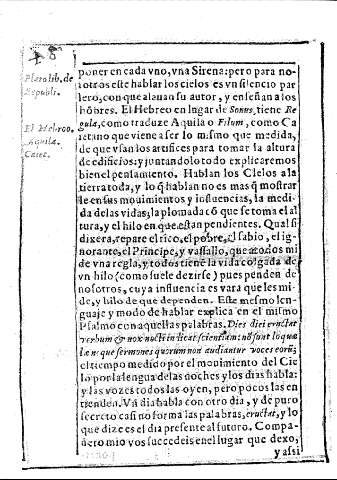 Plato lib. de
Republi.
El Hebreo.
Aquila.
Caiet.
poner en cada vno, vna Sirena: pero para no-
sotros este hablar los cielos es vn silencio par
lero, con que alauan su autor, y enseñan a los
hõbres. El Hebreo en lugar de Sonus, tiene Re
gula, como traduze Aquila o Filum, como Ca
ietano que viene a ser lo mismo que medida,
de que vsan los artifices para tomar la altura
de edificios: y juntandolo todo explicaremos
bien el pensamiento. Hablan los Cielos a la
tierra toda, y lo q̃ hablan no es mas q̃ mostrar
le en sus mouimientos y influencias, la medi
da de las vidas; la plomada cõ que se toma el al
tura, y el hilo en que estan pendientes. Qual si
dixera, repare el rico, el pobre, el sabio, el ig-
norante, el Principe, y vassallo, que a todos mi
de vna regla, y todos tiene la vida colgada de
vn hilo (como suele dezirse) pues penden de
nosotros, cuya influencia es vara que les mi-
de, y hilo de que dependen. Este mesmo len-
guaje y modo de hablar explica en el mismo
Psalmo con aquellas palabras. Dies diei eructat
verbum & nox nocti indicat scientiam: nõ sunt loquæ
læ neque sermones quorum non audiantur voces eorũ;
el tiempo medido por el mouimiento del Cie
lo por la lengua de las noches y los dias habla:
y las vozes todos las oyen, pero pocos las en
tienden. Vn dia habla con otro dia, y de puro
secreto casi no forma las palabras, eructat, y lo
que dize es el dia presente al futuro. Compa-
ñero mio vos succedeis en el lugar que dexo,
y assi